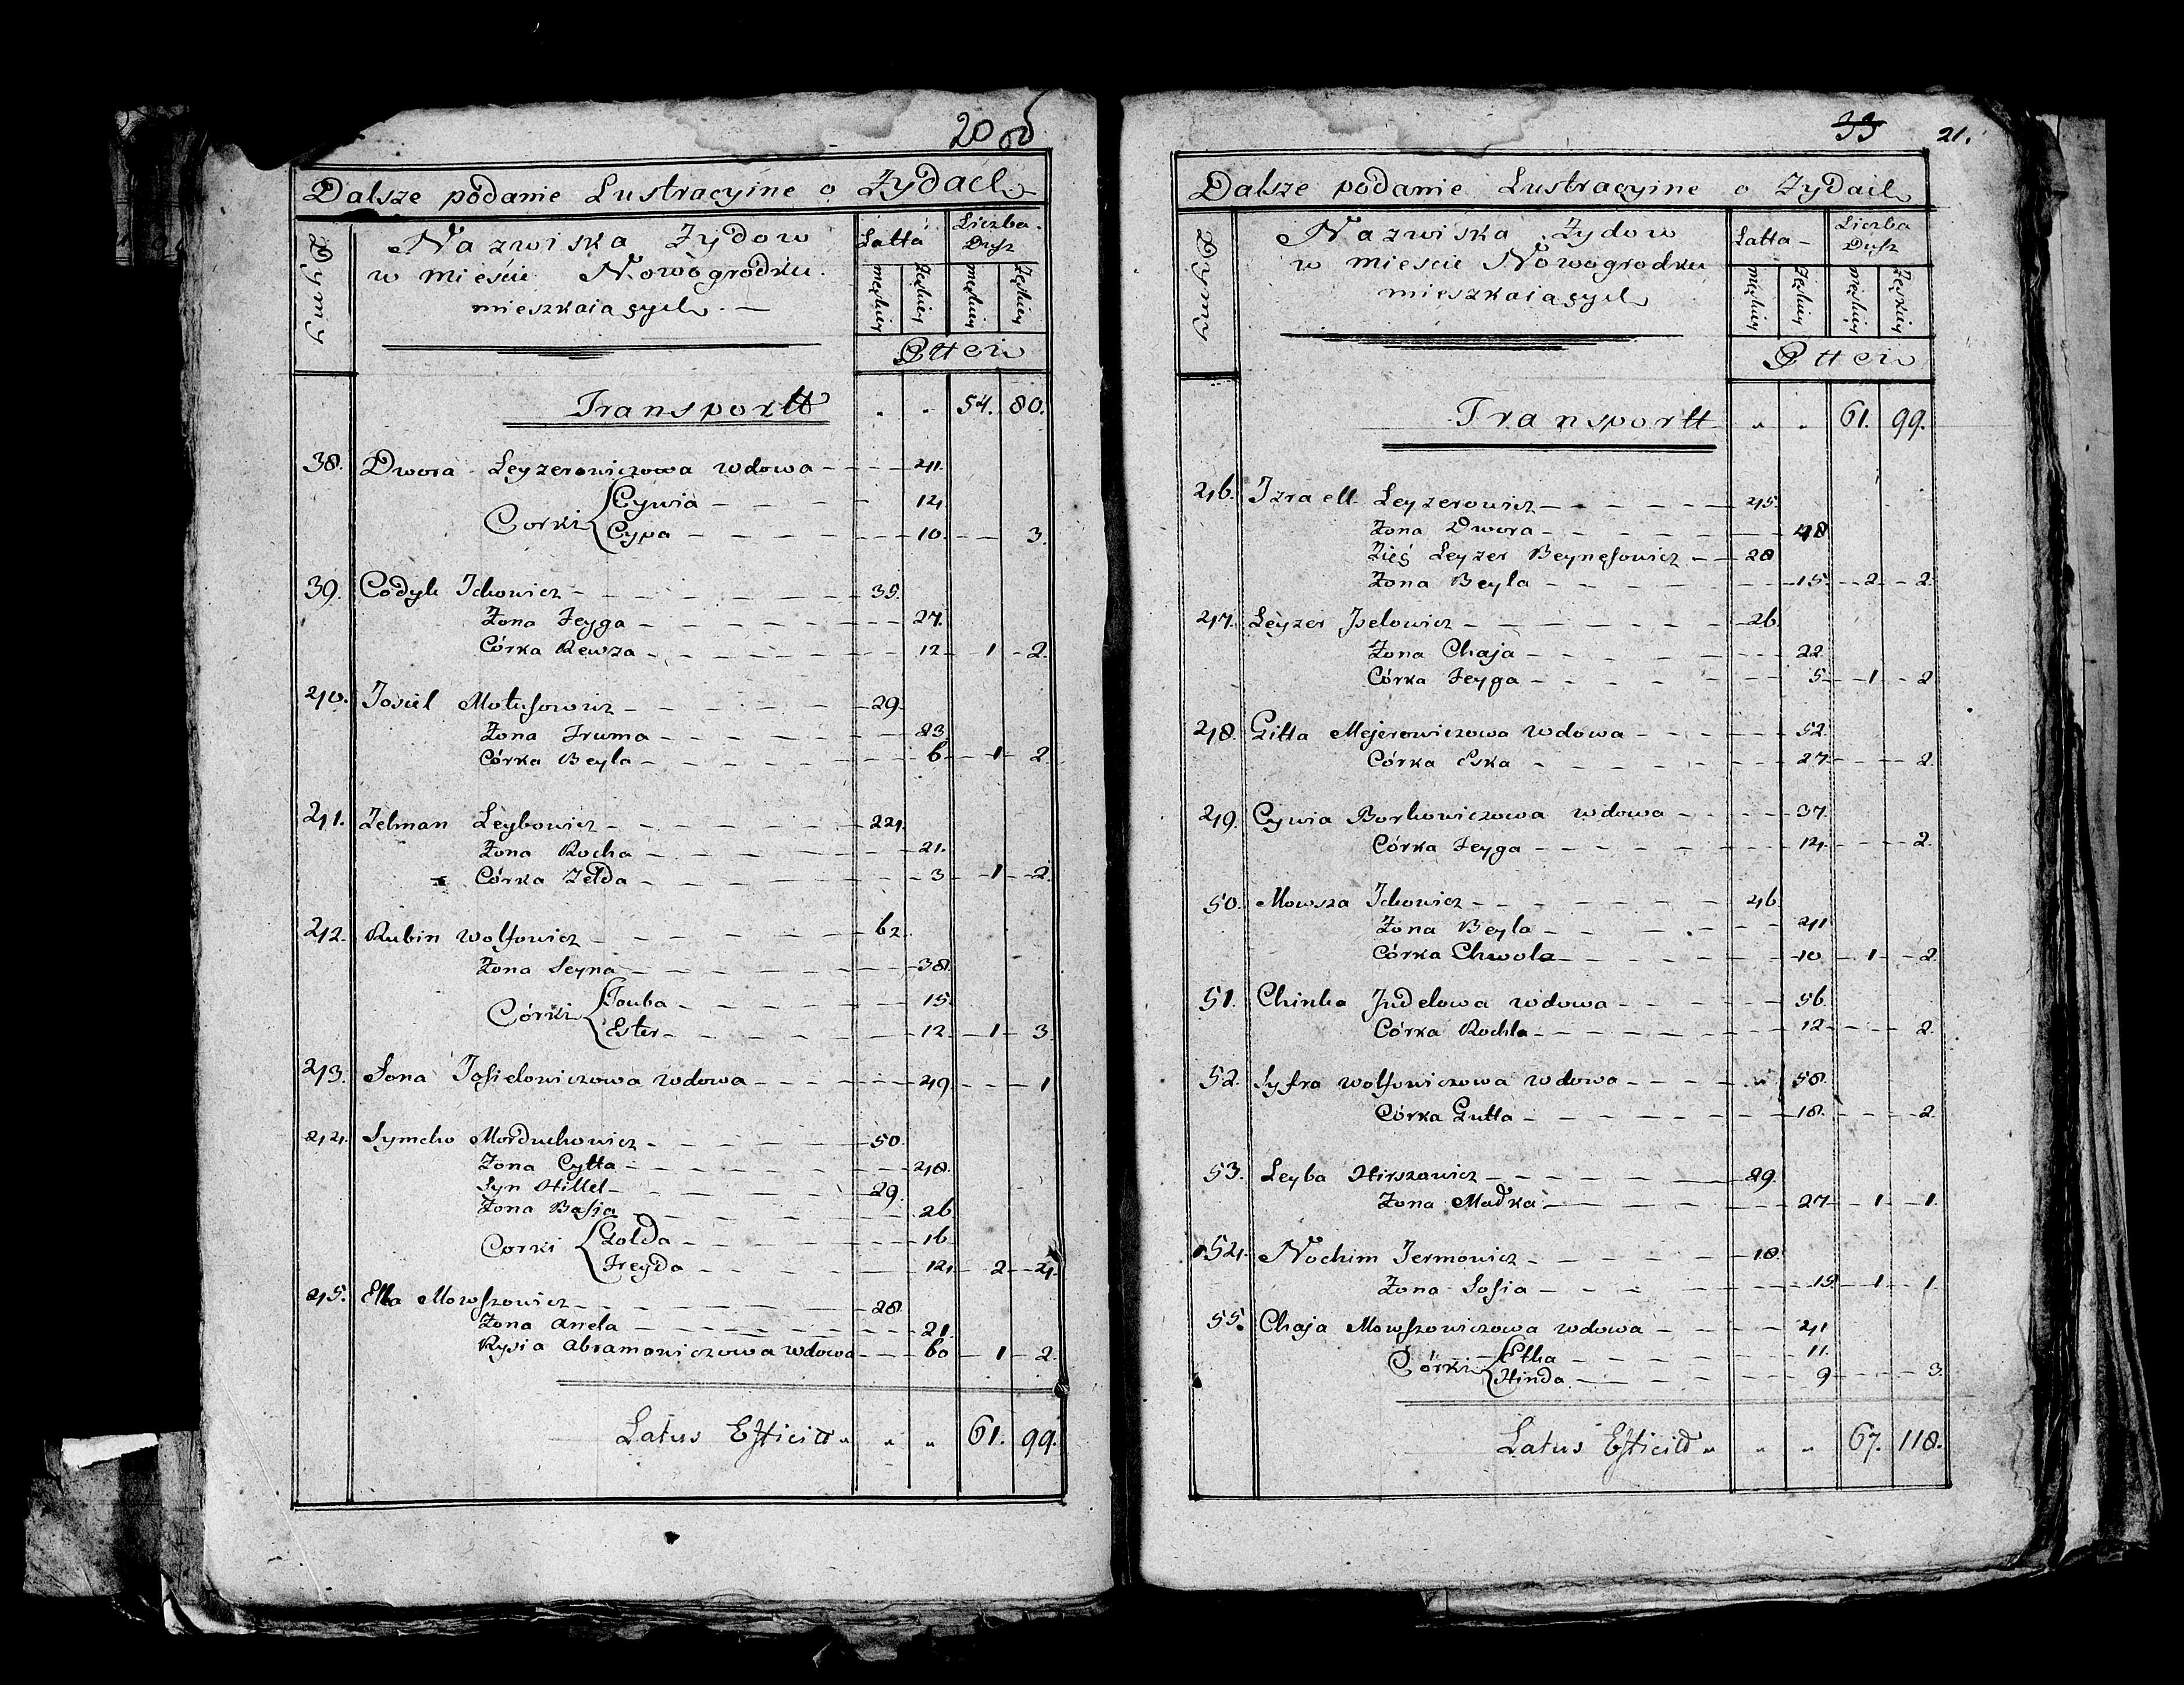 20 об
Dalsze podanie Lustracyine o Żydach
Dymy
Nazwiska Żydow
w mieście Nowogrodku
mieszkaiących. —
Latta
Liczba Dusz
męskiey żęskiey męskiey żęskiey
Ettei
Transportt " " 54. 80.
38. Dwora Leyzerowiczowa wdowa - - - 41.
Corki { Cywia - - - 14
Cypa - - - 10 - - 3.
39. Codyk Ickowicz - - - 35.
Żona Feyga - - - 27.
Córka Rewza - - - 12 - 1 - 2.
40. Josiel Motusowicz - - - 29
Żona Fruma - - - 23
Córka Beyla - - - 6 - 1 - 2
41. Zelman Leybowicz - - - 24.
Żona Rocha - - - 21.
Córka Zelda - - - 3 - 1 - 2.
42. Rubin Wolfowicz - - - 62.
Żona Seyna - - - 38.
Córki { Touba - - - 15
Ester - - - 12 - 1 - 3
43. Sona Josielowiczowa wdowa - - - 49 - - - 1
44. Symcho Morduchowicz - - - 50.
Żona Cytta - - - 48.
Syn Hillel - - - 29.
Żona Basia - - - 26
Corki { Golda - - - 16
Freyda - - - 14 - 2 - 4.
45. Elka Mowszowicz - - - 28.
Żona Anela - - - 21.
Rysia Abramowiczowa wdowa - - - 60 - 1 - 2.
Latus Efficitt " " " 61. 99.
33 21.
Dalsze podanie Lustracyine o Żydach
Dymy
Nazwiska Żydow
w mieście Nowogrodku
mieszkaiących
Latta -
Liczba Dusz
męskiey żęskiey męskiey żęskiey
Ettei
Transportt " " 61. 99.
46. Izraell Leyzerowicz - - - 45.
Żona Dwora - - - 48
Zięć Leyzer Beynesowicz - - 28
Żona Beyla - - - 15 - 2 - 2.
47. Leyzer Jselowicz - - - 26
Żona Chaja - - - 22.
Córka Feyga - - - 5 - 1 - 2
48. Gitta Mejerowiczowa wdowa - - - 52
Córka Eska - - - 27 - - - 2.
49. Cywia Borkowiczowa wdowa - - - 37.
Córka Feyga - - - 14 - - - 2.
50. Mowsza Ickowicz - - - 46
Żona Beyla - - - 41
Córka Chwola - - - 10 - 1 - 2.
51. Chinka Judelowa wdowa - - - 56.
Córka Rochla - - - 12 - - - 2.
52. Syfra Wolfowiczowa wdowa - - - 58.
Córka Gutta - - - 18 - - - 2.
53. Leyba Hirszowicz - - - 29.
Żona Madka - - - 27 - 1 - 1.
54. Nochim Jermowicz - - - 18.
Żona Sosia - - - 15 - 1 - 1.
55. Chaja Mowszowiczowa wdowa - - - 41
Córki { Etka - - - 11.
Hinda - - - 9 - - - 3.
Latus Efficitt " " " 67. 118.